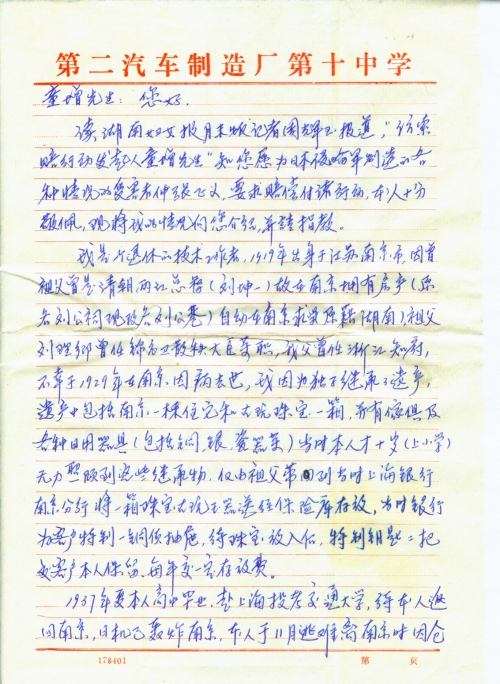 第二汽车制造厂第十中学
童增先生：您好.
读湖南妇女报月末版记者周辉玉报道，"访索
赔行动发起人童增先生"知您愿为日本侵略军制造的各
种情况的受害者伸张正义，要求赔偿付诸行动，本人十分
敬佩，现将我的情况向您介绍，并请指教。
我是个退休的技术工作者，1919年出身于江苏南京市，因曾
祖父曾是清朝两江总督(刘坤一)故在南京拥有房产(原
名刘公祠现改名刘公巷)自幼在南京求学原籍湖南)祖父
刘 卿曾任 散秩大臣 职，我父曾任浙江知府，
不幸于1929年在南京因病去世，我因为独子继承了遗产，
遗产中包括南京一栋住宅和古玩珠宝一箱，并有傢俱及
各种日用器具(包括铜、银、瓷器等)当时本人才十岁(上小学)
无力照顾到这些继承物，仅由祖父带回到当时上海银行
南京分行将一箱珠宝古玩玉器送往保险库存放，当时银行
为客户特制一钢质抽屉，待珠宝放入后，特制钥匙二把
交客户本人保留，每年交一定存放费。
1937年夏本人高中毕业，赴上海投考交通大学，待本人返
回南京，日机已轰炸南京，本人于11月逃难离南京时因仓
178401
第 页